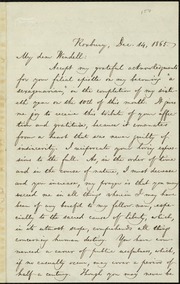 Roxbury, Dec. 14, 1865.
My dear Wendell:
Accept my grateful acknowledgments
for your filial epistle on my becoming "a
sexagenarian," on the completion of my sixt-
ieth year on the 10th of this month. It gives
me joy to receive this tribute of your affec-
tion and gratitude, because it emanates
from a heart that was never guilty of
insincerity. I reciprocate your loving expres-
sions to the full. As, in the order of time
and in the course of nature, I must decrease
and you increase, my prayer is that you may
exceed me in all things wherein I may have
been of any benefit to my fellow men, espe-
cially to the sacred cause of liberty, which,
in its utmost scope, comprehends all things
concerning human destiny. You have com-
menced a career of public usefulness, which,
if no casualty occur, may cover a period of
half a century. Though you may never be